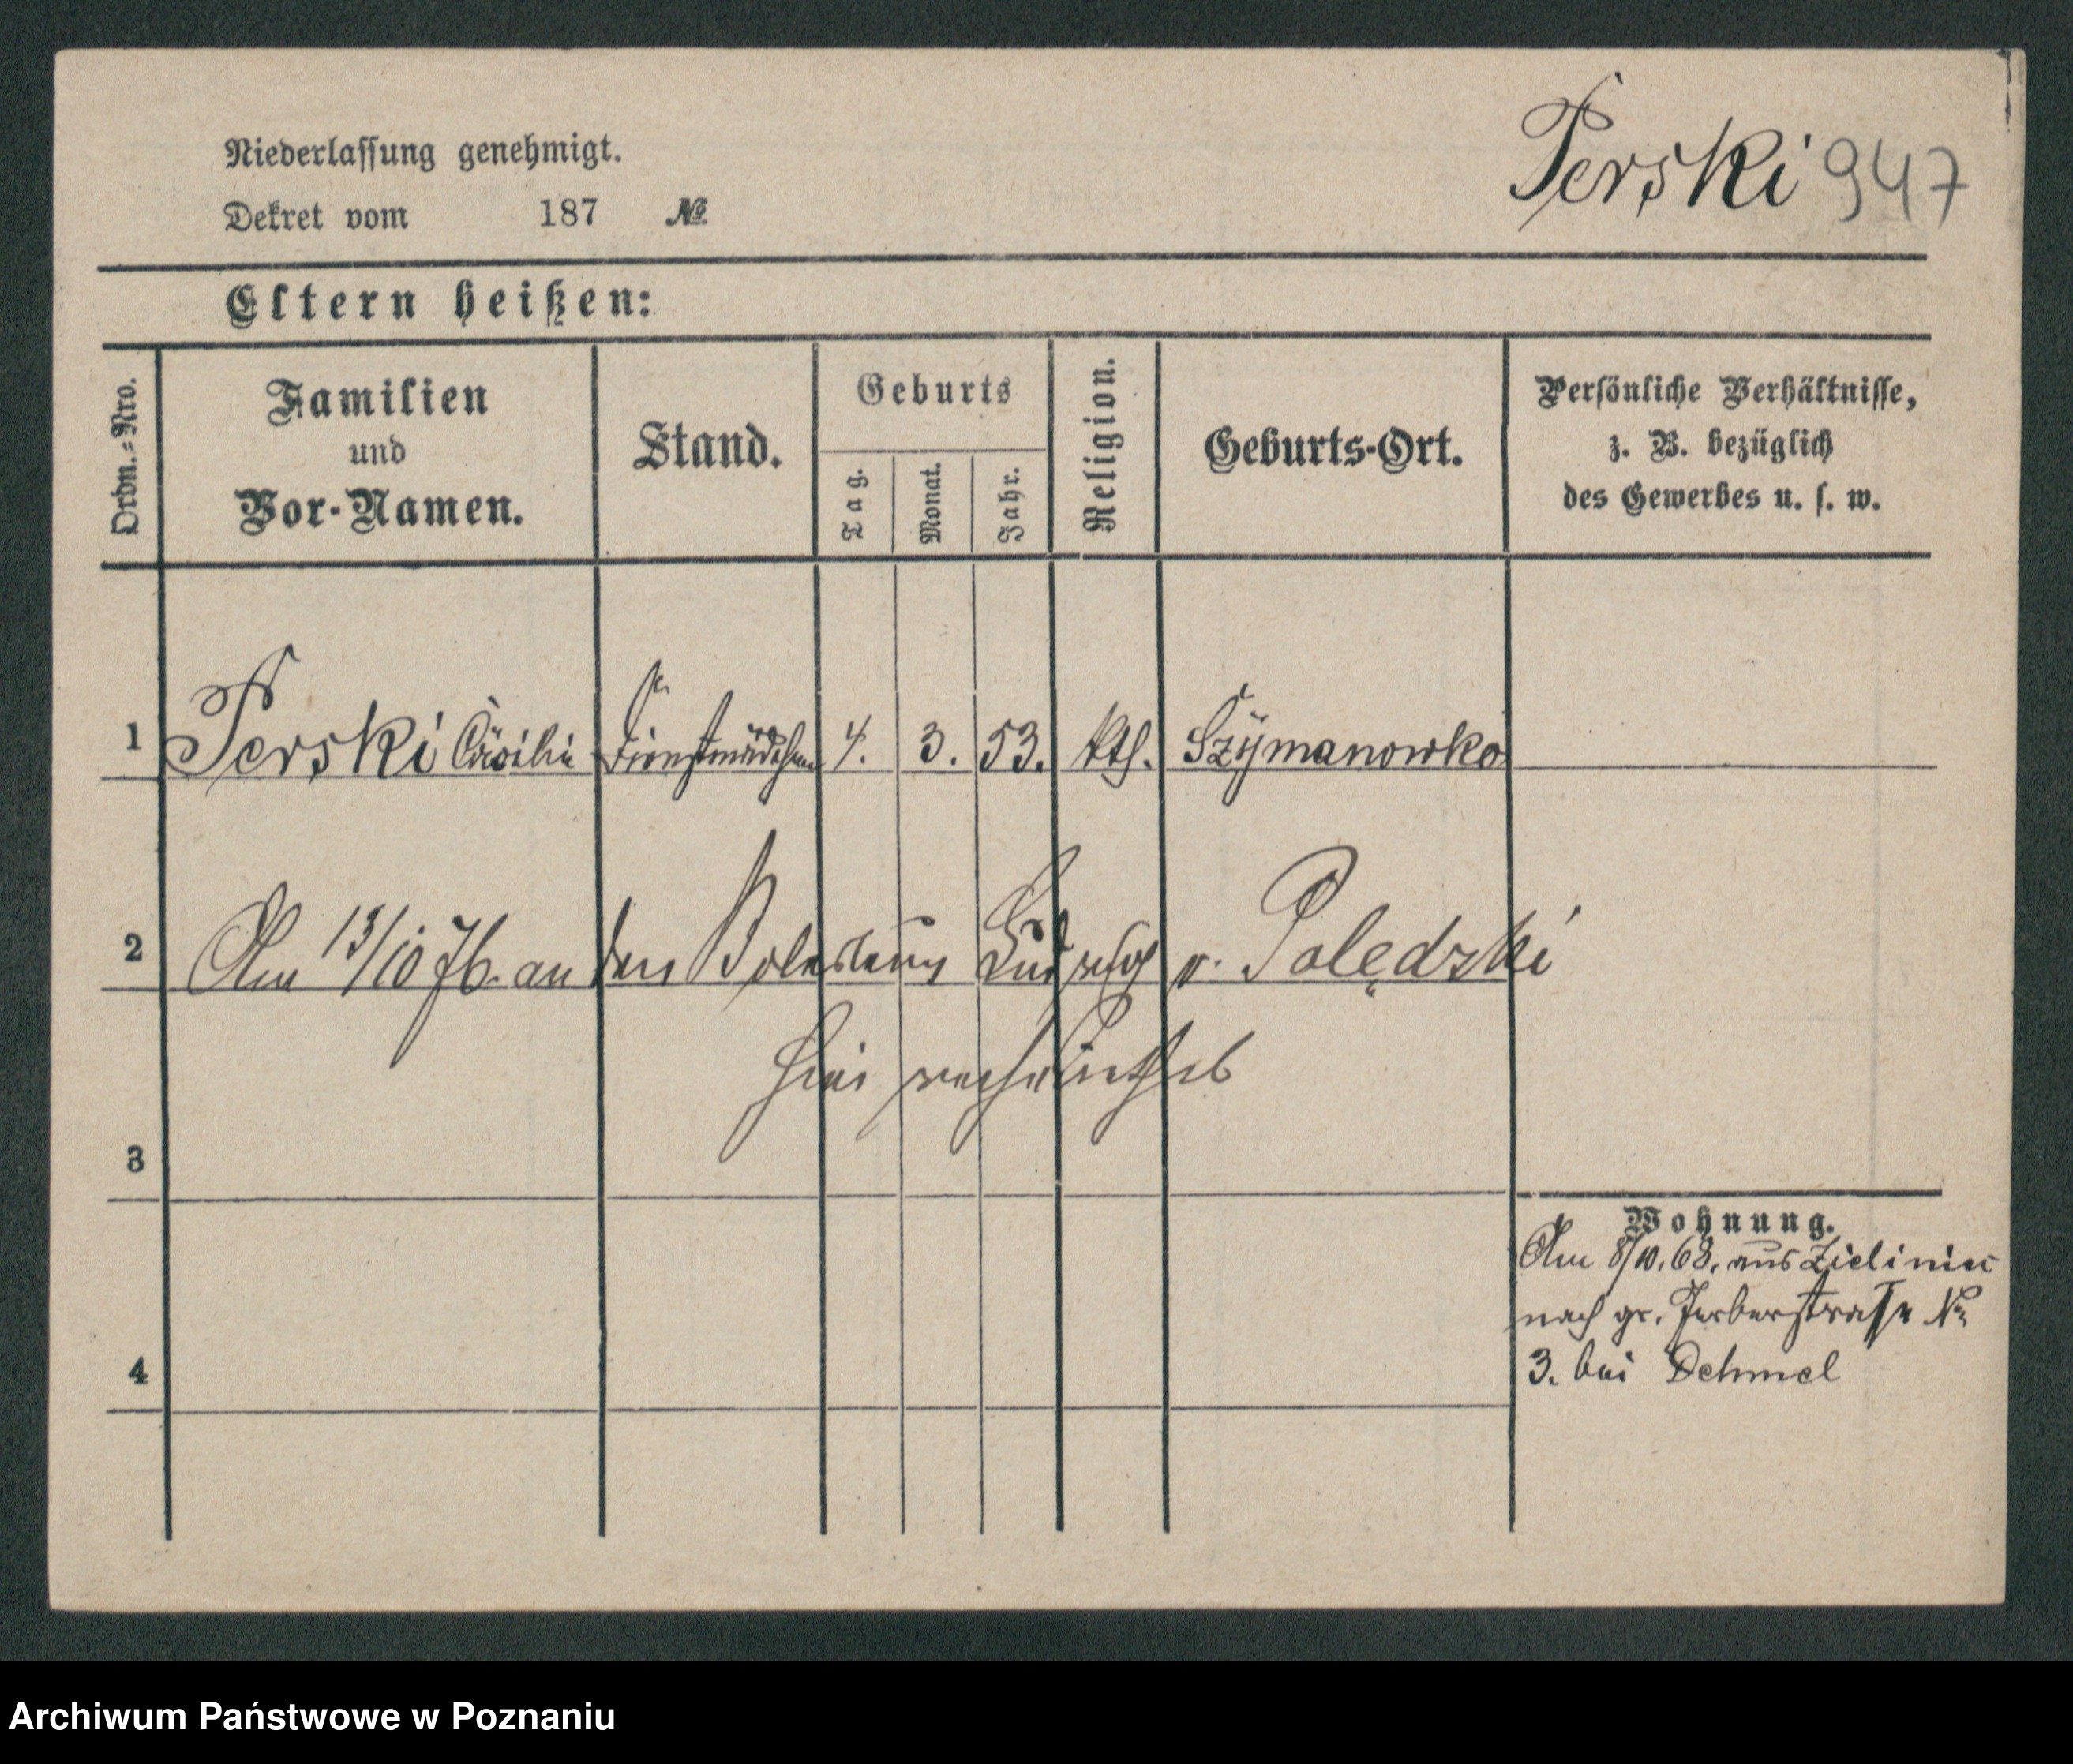 Perski 947
Niederlassung genehmigt.
Dekret vom 187 №
Eltern heißen:
Ordn.=Nro.
Familien
und
Vor-Namen.
Stand.
Geburts
Tag.
Monat.
Jahr.
Religion.
Geburts-Ort.
Persönliche Verhältnisse,
z. B. bezüglich
des Gewerbes u. s. w.
1 Perski Cäcilie Dienstmädchen 4. 3. 53. kth. Szymanowko
2 Am 13/10 76. an den Boleslaus Ludwig v. Polędzki
hier verheirathet
3
Wohnung.
Am 8/10.68. aus Zieliniec
nach gr. Gerberstraße №
3. bei Dehmel
4
Archiwum Państwowe w Poznaniu